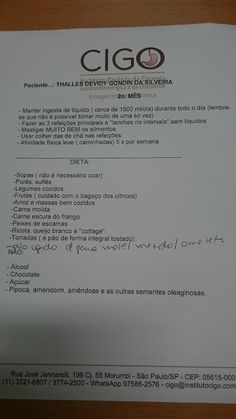 CIGO
Paciente...: THALLES DEVIDY GONDIN DA SILVEIRA
2o: MÊS
- Manter ingesta de líquido ( cerca de 1500 ml/dia) durante todo o dia (lembre-
se que não é possível tomar muito de uma só vez)
- Fazer as 3 refeições principais e "lanches no intervalo",sem líquidos
- Mastigar MUITO BEM os alimentos
- Usar colher das de chá nas refeições
- Atividade física leve ( caminhadas) 5 x por semana
DIETA:
-Sopas ( não é necessário coar)
-Purês, suflês
-Legumes cozidos
-Frutas ( cuidado com o bagaço dos cítricos)
-Arroz e massas bem cozidos
-Carne moída
-Carne escura do frango
-Peixes de escamas
-Ricota, queijo branco e "cottage"
-Torradas ( e pão de forma integral tostado)
NÃO:
- Álcool
- Chocolate
- Açúcar
- Pipoca, amendoim, amêndoas e as outras sementes oleaginosas.
Rua José Jannarelli, 199 Cj. 55 Morumbi - São Paulo/SP - CEP: 05615-000
(11) 3721-6807 / 3774-2500 - WhatsApp 97586-2576 - cigo@institutocigo.com